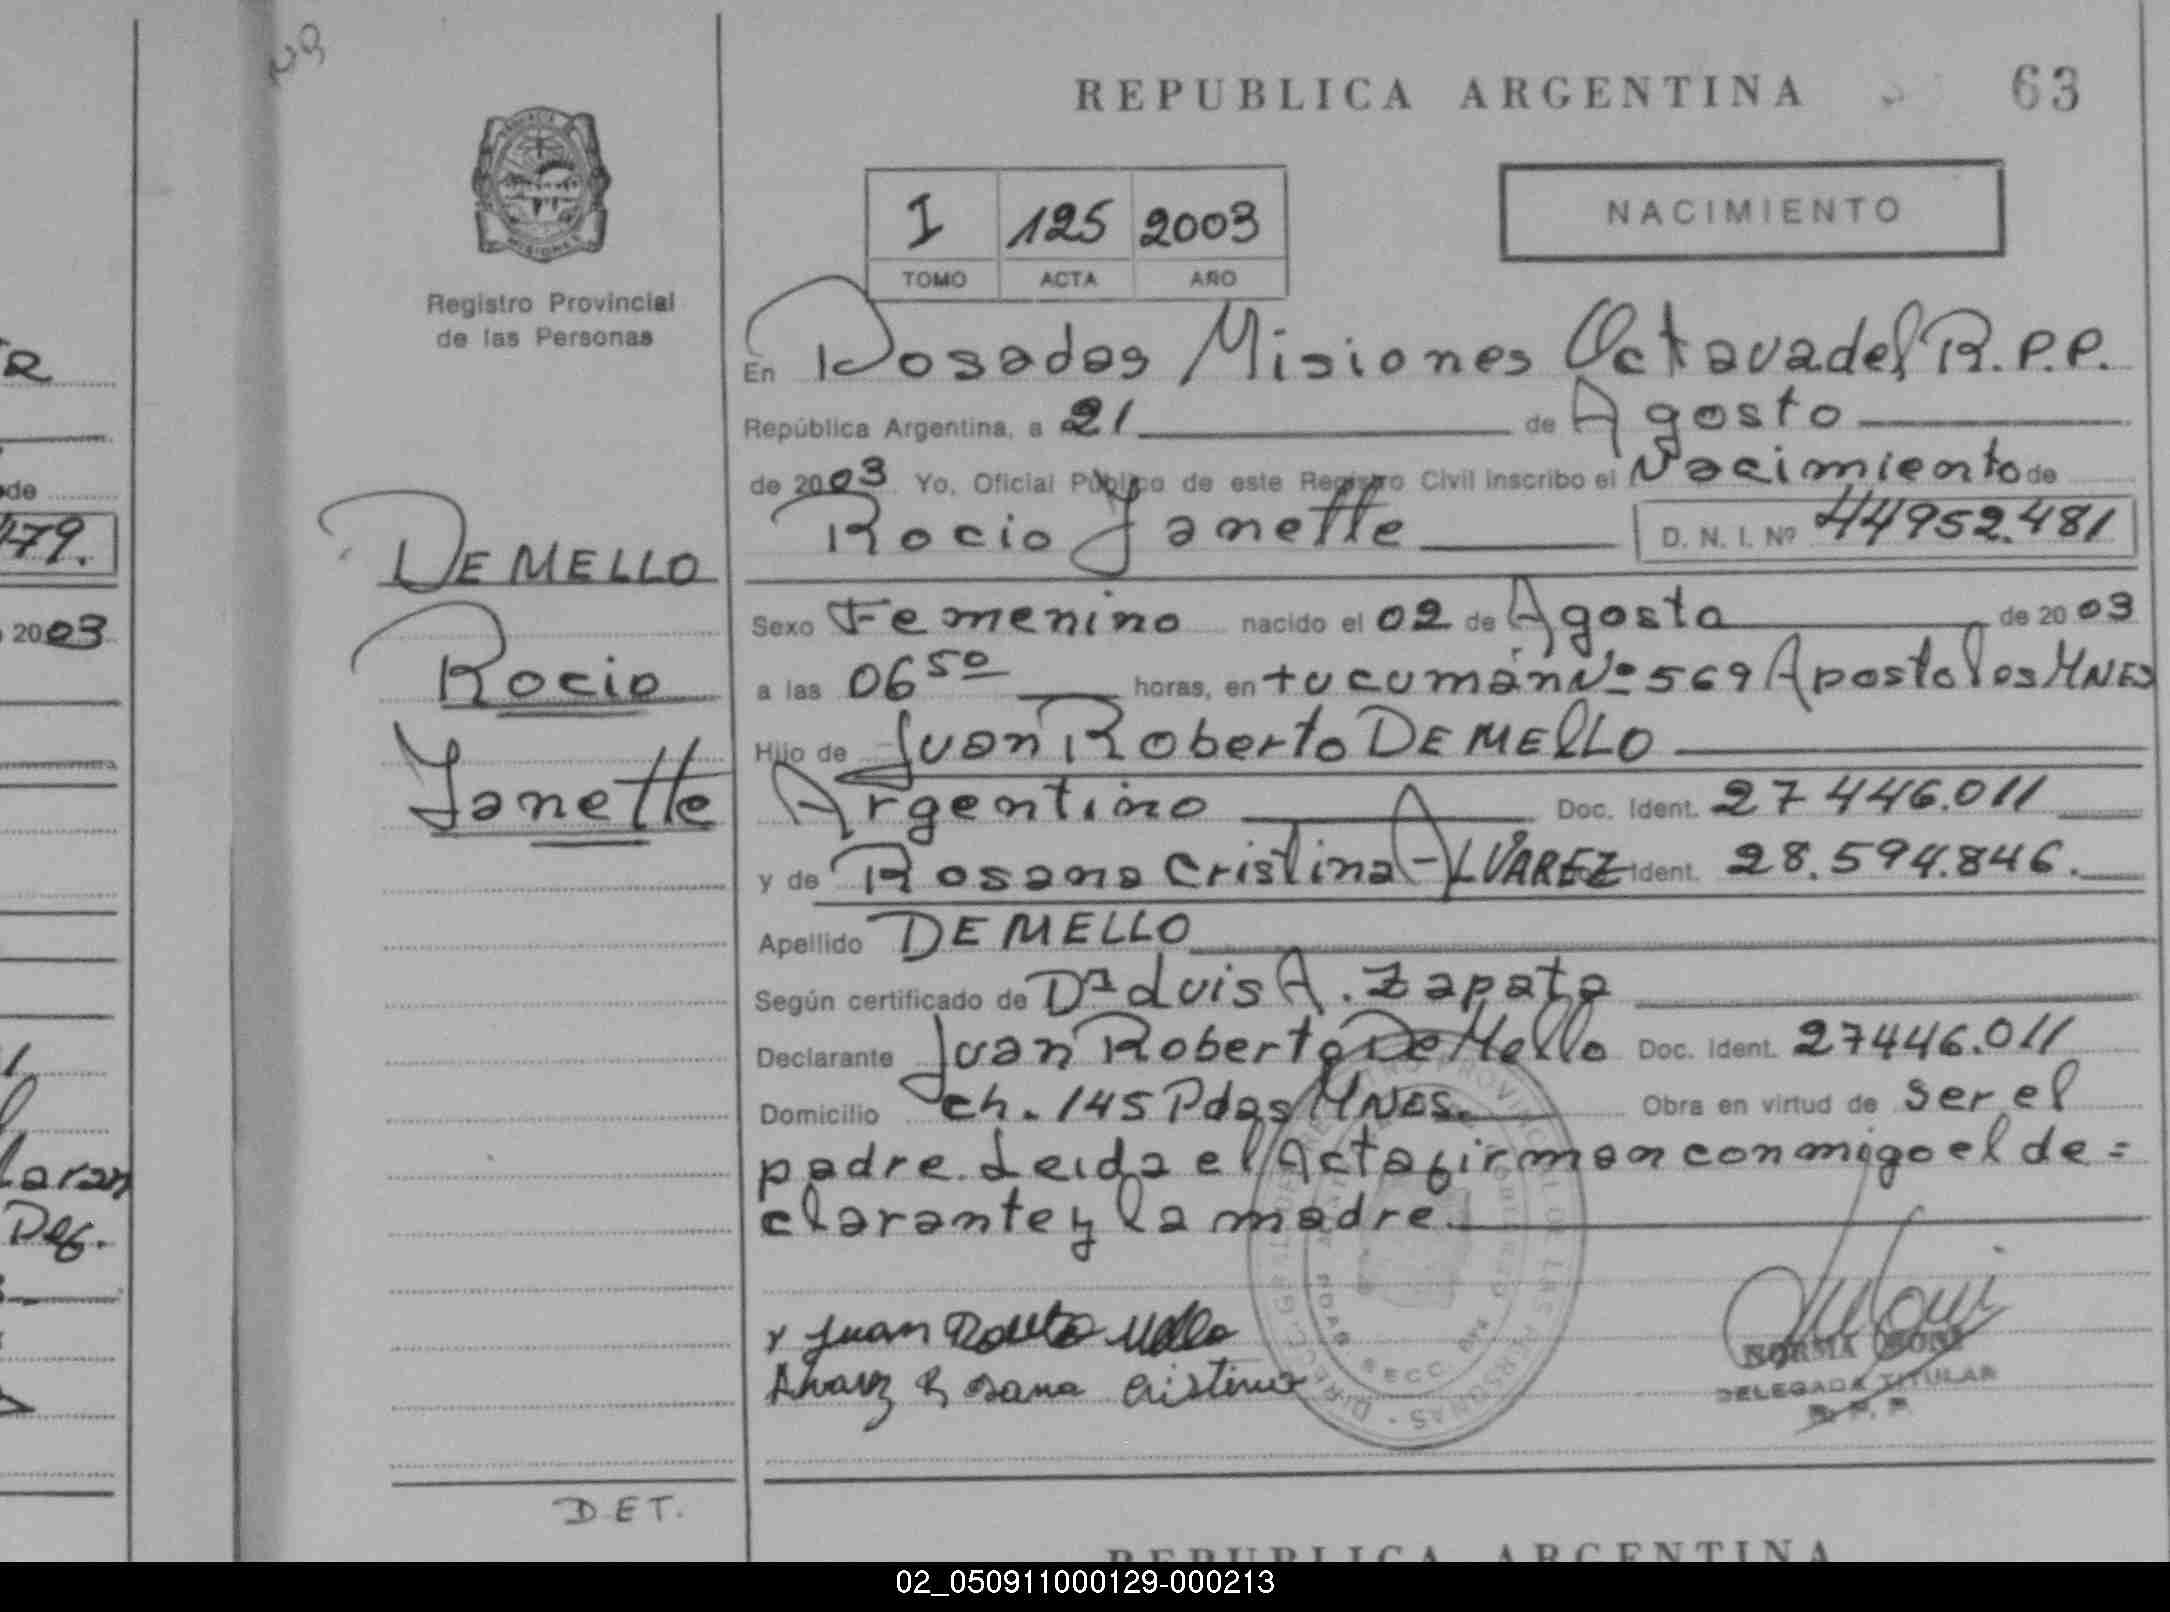 REPUBLICA ARGENTINA
63
I 125 2003
TOMO ACTA AÑO
NACIMIENTO
Registro Provincial
de las Personas
En Posadas Misiones Octava del R.P.P.
República Argentina, a 21 de Agosto
de 2003 Yo, Oficial Público de este Registro Civil inscribo el Nacimiento de
Rocio Janette D. N. I. Nº 44952.481
DE MELLO
Rocio
Janette
Sexo Femenino nacido el 02 de Agosto de 2003
a las 06 50 horas, en tucumán Nº 569 Apostoles MNES
Hijo de Juan Roberto DE MELLO
Argentino Doc. Ident. 27446.011
y de Rosana Cristina ALVAREZ Ident. 28.594.846.
Apellido DE MELLO
Según certificado de Dr Luis A. Zapata
Declarante Juan Roberto De Mello Doc. Ident. 27446.011
Domicilio ch. 145 Pdas MNES. Obra en virtud de ser el
padre. Leida el Acta firman conmigo el de=
clarante y la madre.
Juan Roberto Mello
Alvarez Rosana Cristina
NORMA
DELEGADA TITULAR
R. P. P.
D.ET.
REPUBLICA ARGENTINA
479.
2003
Def.
02_050911000129-000213